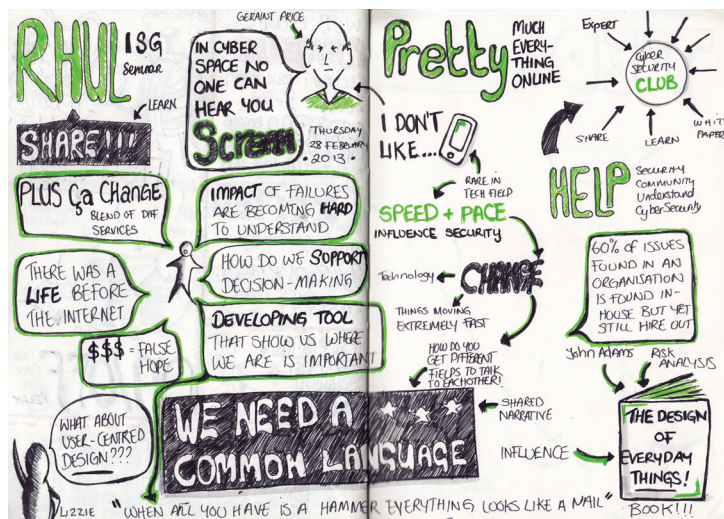 GERAINT PRICE
RHUL
ISG
Seminar
LEARN
SHARE!!!
IN CYBER
SPACE NO
ONE CAN
HEAR YOU
Scream
THURSDAY
28 FEBRUARY
• 2013 •
PLUS Ça Change
BLEND OF DIFF
SERVICES
IMPACT OF FAILURES
ARE BECOMING HARD
TO UNDERSTAND
THERE WAS A
LIFE BEFORE
THE INTERNET
HOW DO WE SUPPORT
DECISION-MAKING
$$$ = FALSE
HOPE
DEVELOPING TOOL
THAT SHOW US WHERE
WE ARE IS IMPORTANT
WHAT ABOUT
USER-CENTRED
DESIGN???
LIZZIE
WE NEED A
COMMON LANGUAGE
"WHEN ALL YOU HAVE IS A HAMMER EVERYTHING LOOKS LIKE A NAIL"
Pretty
MUCH
EVERY-
THING
ONLINE
I DON'T
LIKE...
RARE IN
TECH FIELD
SPEED + PACE
INFLUENCE SECURITY
Technology
CHANGE
THINGS MOVING
EXTREMELY FAST
HOW DO YOU
GET DIFFERENT
FIELDS TO TALK
TO EACHOTHER!
SHARED
NARRATIVE
INFLUENCE
Expert
Cyber
SECURITY
CLUB
SHARE
LEARN
WHITE
PAPER
HELP
SECURITY
COMMUNITY
Understand
CyberSecurity
60% OF ISSUES
FOUND IN AN
ORGANISATION
IS FOUND IN-
HOUSE BUT YET
STILL HIRE OUT
John Adams
RISK
ANALYSIS
THE DESIGN
OF
EVERYDAY
THINGS!
BOOK!!!